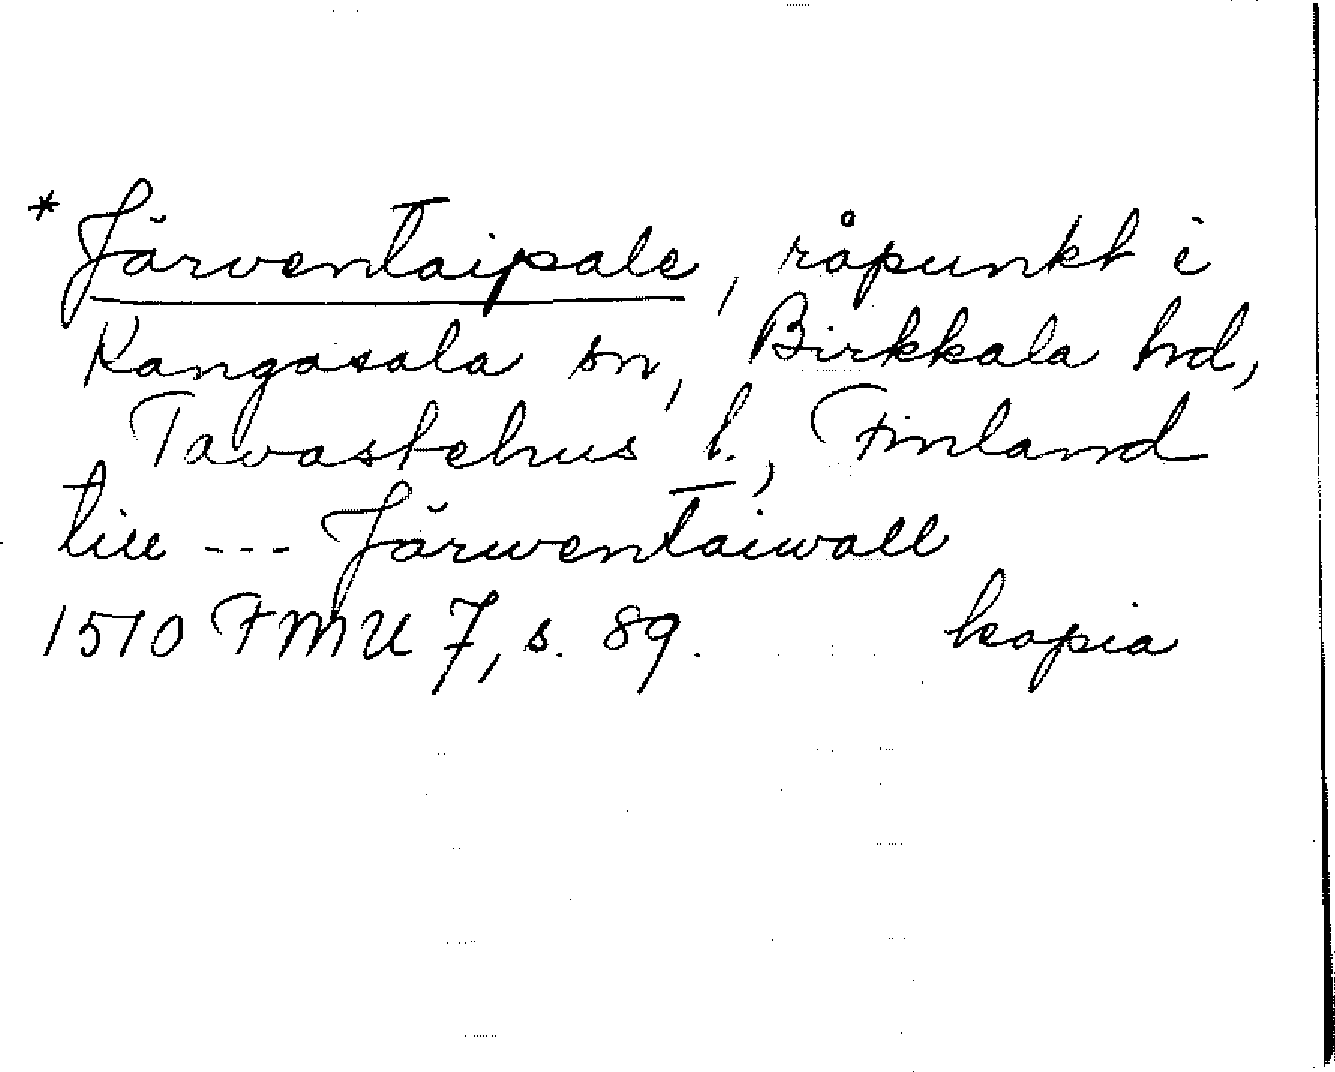 * Järventaipale, råpunkt i
Kangasala sn, Birkkala hd,
Tavastehus l., Finland
till --- Järwentaiwall
1510 FMU 7, s. 89. kopia